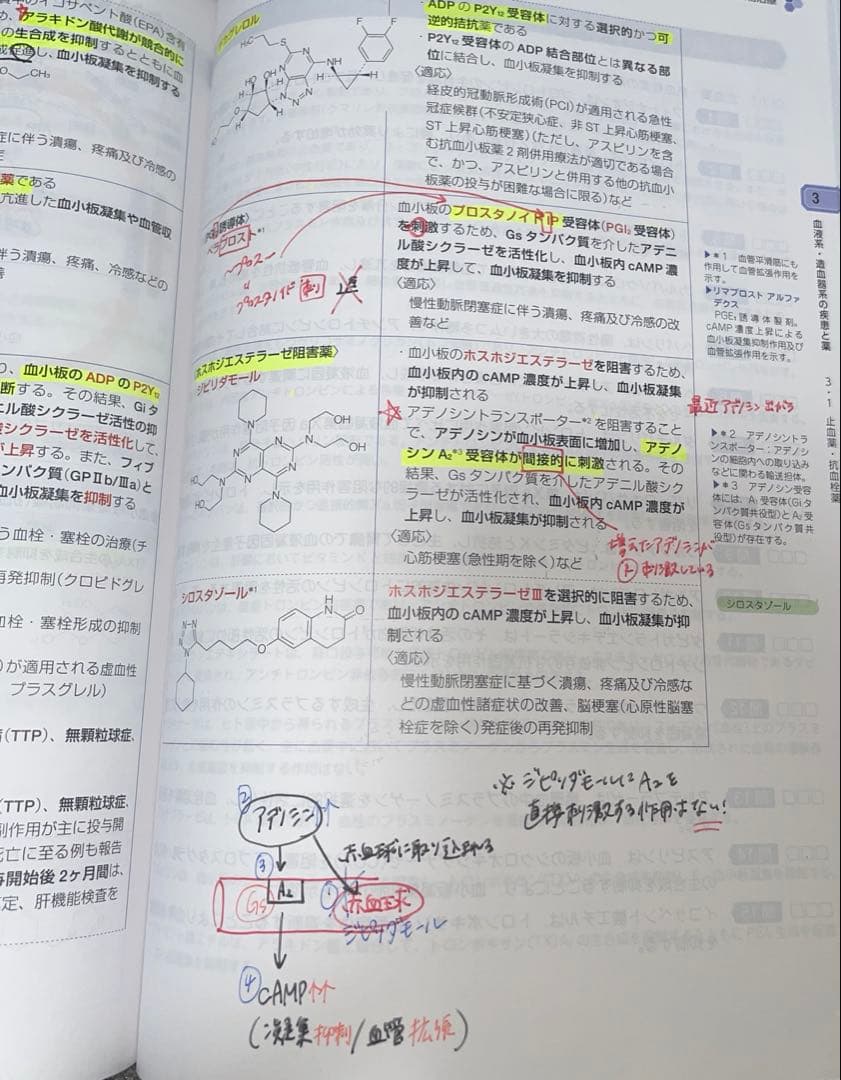 イコサペント酸(EPA)含有
め、アラキドン酸代謝が競合的に
の生合成を抑制するとともに血
成促進し、血小板凝集を抑制する
O CH₃
症に伴う潰瘍、疼痛及び冷感の
薬である
亢進した血小板凝集や血管収
伴う潰瘍、疼痛、冷感などの
り、血小板の ADP の P2Y₁₂
断する。その結果、Giタ
ニル酸シクラーゼ活性の抑
酸シクラーゼを活性化して、
が上昇する。また、フィブ
ンパク質(GPⅡb/Ⅲa)と
血小板凝集を抑制する
う血栓・塞栓の治療(チ
再発抑制(クロピドグレ
血栓・塞栓形成の抑制
)が適用される虚血性
プラスグレル)
(TTP)、無顆粒球症、
(TTP)、無顆粒球症、
副作用が主に投与開
死亡に至る例も報告
与開始後2ヶ月間は、
定、肝機能検査を
チカグレロル
H₃C
S
N
NH
F
F
H
HO
OH
ADP の P2Y₁₂ 受容体に対する選択的かつ可
逆的拮抗薬である
・P2Y₁₂ 受容体の ADP 結合部位とは異なる部
位に結合し、血小板凝集を抑制する
〈適応〉
経皮的冠動脈形成術(PCI)が適用される急性
冠症候群(不安定狭心症、非ST上昇心筋梗塞、
ST上昇心筋梗塞)(ただし、アスピリンを含
む抗血小板薬2剤併用療法が適切である場合
で、かつ、アスピリンと併用する他の抗血小
板薬の投与が困難な場合に限る)など
誘導体〉
ベラプロスト*¹
血小板のプロスタノイドIP受容体(PGI₂受容体)
を刺激するため、Gsタンパク質を介したアデニ
ル酸シクラーゼを活性化し、血小板内cAMP濃
度が上昇して、血小板凝集を抑制する
〈適応〉
慢性動脈閉塞症に伴う潰瘍、疼痛及び冷感の改
善など
ホスホジエステラーゼ阻害薬〉
ジピリダモール
OH
OH
HO
HO
N
・血小板のホスホジエステラーゼを阻害するため、
血小板内のcAMP濃度が上昇し、血小板凝集
が抑制される
アデノシントランスポーター*²を阻害すること
で、アデノシンが血小板表面に増加し、アデノ
シンA₂*³受容体が間接的に刺激される。その
結果、Gsタンパク質を介したアデニル酸シク
ラーゼが活性化され、血小板内cAMP濃度が
上昇し、血小板凝集が抑制される
〈適応〉
心筋梗塞(急性期を除く)など
増えたアデノシンが
刺激している
シロスタゾール*¹
N-N
N
O
H
N
O
ホスホジエステラーゼⅢを選択的に阻害するため、
血小板内のcAMP濃度が上昇し、血小板凝集が抑
制される
〈適応〉
慢性動脈閉塞症に基づく潰瘍、疼痛及び冷感な
どの虚血性諸症状の改善、脳梗塞(心原性脳塞
栓症を除く)発症後の再発抑制
3
血液系・造血器系の疾患と薬
3・1 止血薬・抗血栓薬
▶*1 血管平滑筋にも
作用して血管拡張作用を
示す。
▶リマプロスト アルファ
デクス
PGE₁誘導体製剤。
cAMP濃度上昇による
血小板凝集抑制作用及び
血管拡張作用を示す。
最近アデノシン出がち
▶*2 アデノシントラ
ンスポーター:アデノシ
ンの細胞内への取り込み
などに関わる輸送担体。
▶*3 アデノシン受容
体には、A₁受容体(Giタ
ンパク質共役型)とA₂受
容体(Gsタンパク質共
役型)が存在する。
シロスタゾール
※ ジピリダモールに A₂を
直接刺激する作用はない!
②
アデノシン↑
赤血球に取り込まれる
③
Gs
A₂
①
赤血球
ジピリダモール
④
cAMP↑↑
(凝集抑制/血管拡張)